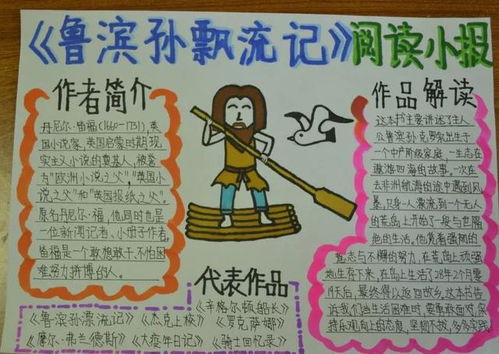 《鲁滨孙飘流记》阅读小报
作者简介
丹尼尔·笛福(1660-1731),英
国小说家,英国启蒙时期现
实主义小说的奠基人,被誉
为"欧洲小说之父","英国小
说之父"和"英国报纸之父"。
原名丹尼尔·福,他同时也是
一位新闻记者、小册子作者,
笛福是一个敢想敢干,不怕困
难努力拼博的人。
作品解读
这本书主要讲述了主人
公鲁滨孙克罗索出生于
一个中产阶级家庭,一生志在
遨游四海的故事,一次在
去非洲航海的途中遇到风
暴,只身一人漂流到一个无人
的荒岛上开始了一段与世隔
绝的生活,他凭着强韧的
意志与不懈的努力,在荒岛上顽强
地生存下来,在岛上生活了28年2个月零
19天后,最终得以返回故乡,这本书告
诉我们当生活困难时,要勇敢面对,保
持乐观向上的态度,坚韧不拔,多多实践
代表作品
《辛格尔顿船长》
《鲁滨孙漂流记》《杰克上校》《罗克萨娜》
《摩尔·弗兰德斯》《大疫年日记》《骑士回忆录》